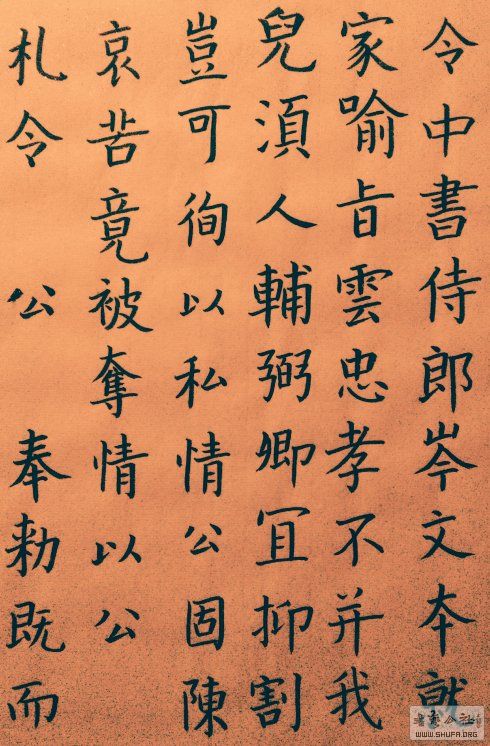 令中書侍郎岑文夲就
家喻旨雲忠孝不并我
兒湏人輔弼卿冝抑割
豈可徇以私情公固陳
哀苦竟被奪情以公
札令　公　奉勑既而
書藝公社
WWW.SHUFA.ORG